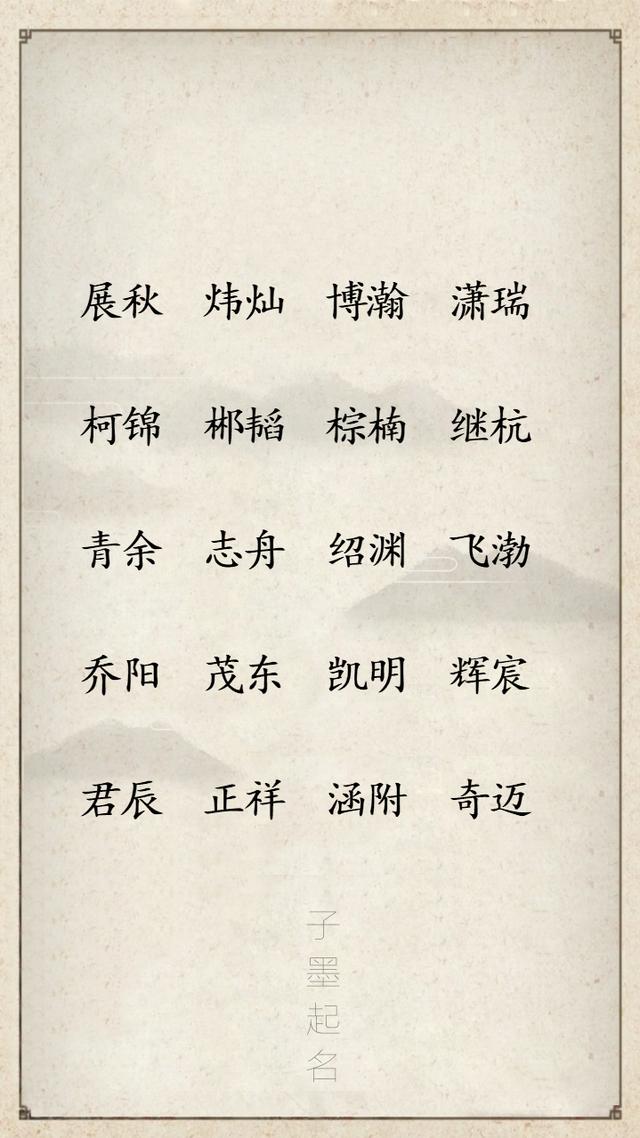 展秋 炜灿 博瀚 潇瑞
柯锦 郴韬 棕楠 继杭
青余 志舟 绍渊 飞渤
乔阳 茂东 凯明 辉宸
君辰 正祥 涵附 奇迈
子墨起名